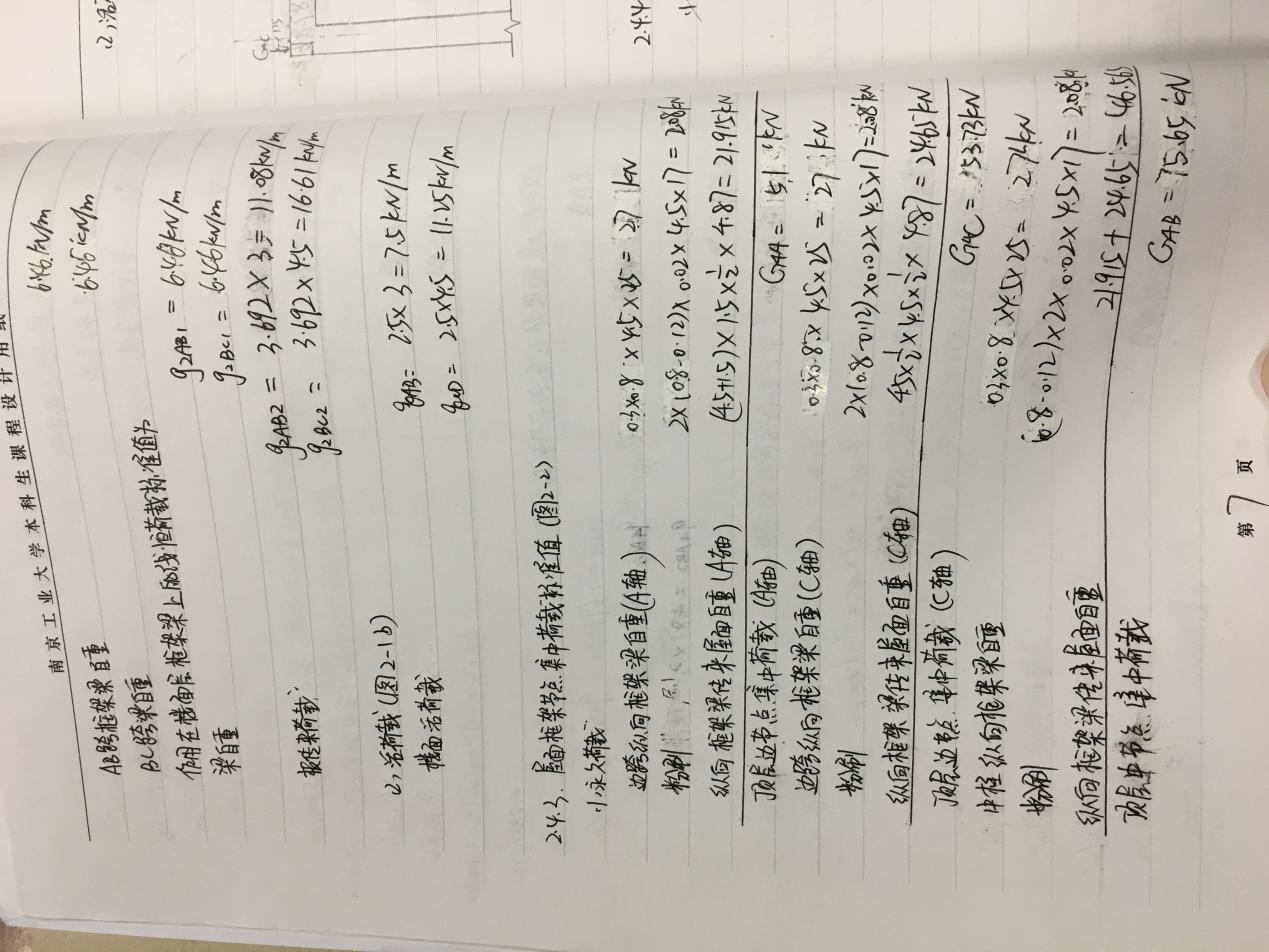 南京工业大学本科生课程设计用纸
AB跨框架梁自重 6.46kN/m
BC跨梁自重 6.46kN/m
作用在楼面层框架梁上的线恒荷载标准值为
梁自重 g2AB1 = 6.46kN/m
g2BC1 = 6.46kN/m
板传来荷载 g2AB2 = 3.692×3 = 11.08kN/m
g2BC2 = 3.692×4.5 = 16.61kN/m
2)、活荷载(图2-1b)
楼面活荷载 qAB = 2.5×3 = 7.5kN/m
2.5×4.5 = 11.25kN/m
2.4.3. 屋面框架节点集中荷载标准值 (图2-2)
1)永久荷载
边跨纵向框架梁自重(A轴) 0.3×0.8×4.5×25 = 27 kN
粉刷 2×(0.8-0.12)×0.02×4.5×17 = 2.08kN
纵向框架梁传来屋面自重(A轴) (4.5+1.5)×1.5×½×4.87 = 21.915kN
顶层边节点集中荷载 (A轴) GAA = 51 kN
边跨纵向框架梁自重(C轴) 0.3×0.8×4.5×25 = 27 kN
粉刷 2×(0.8-0.12)×0.02×4.5×17 = 2.08kN
纵向框架梁传来屋面自重(C轴) 4.5×½×4.5×½×4.87 = 24.65kN
顶层边节点集中荷载 (C轴) GAC = 53.73kN
中柱纵向框架梁自重 0.3×0.8×4.5×25 = 27kN
粉刷 (0.8-0.12)×2×0.02×4.5×17 = 2.08
纵向框架梁传来屋面自重 21.915+24.65 = 46.565
顶层中节点集中荷载 GAB = 75.65kN
第 7 页
GAC
2.4.4